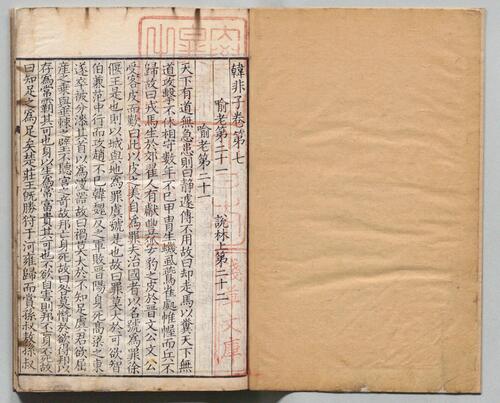 韓非子卷第七
喻老第二十一 說林上第二十二
喻老第二十一
天下有道無急患則曰靜遽傳不用故曰却走馬以糞天下無
道攻擊不休相守數年不已甲胄生蟣虱鷰雀處帷幄而兵不
歸故曰戎馬生於郊翟人有獻豐狐玄豹之皮於晉文公文公
受客皮而歎曰此以皮之美自為罪夫治國者以名號為罪徐
偃王是也則以城與地為罪虞虢是也故曰罪莫大於可欲智
伯兼范中行而攻趙不已韓魏反之軍敗晉陽身死高梁之東
遂卒被分漆其首以為溲器故曰禍莫大於不知足虞君欲屈
產之乘與垂棘之璧不聽宮之奇故邦亡身死故曰咎莫憯於欲得邦以
存為常霸其可也身以生為常富貴其可也不欲自害則邦不亡身不死故
曰知足之為足矣楚莊王既勝狩于河雍歸而賞孫叔敖孫叔
淺草文庫